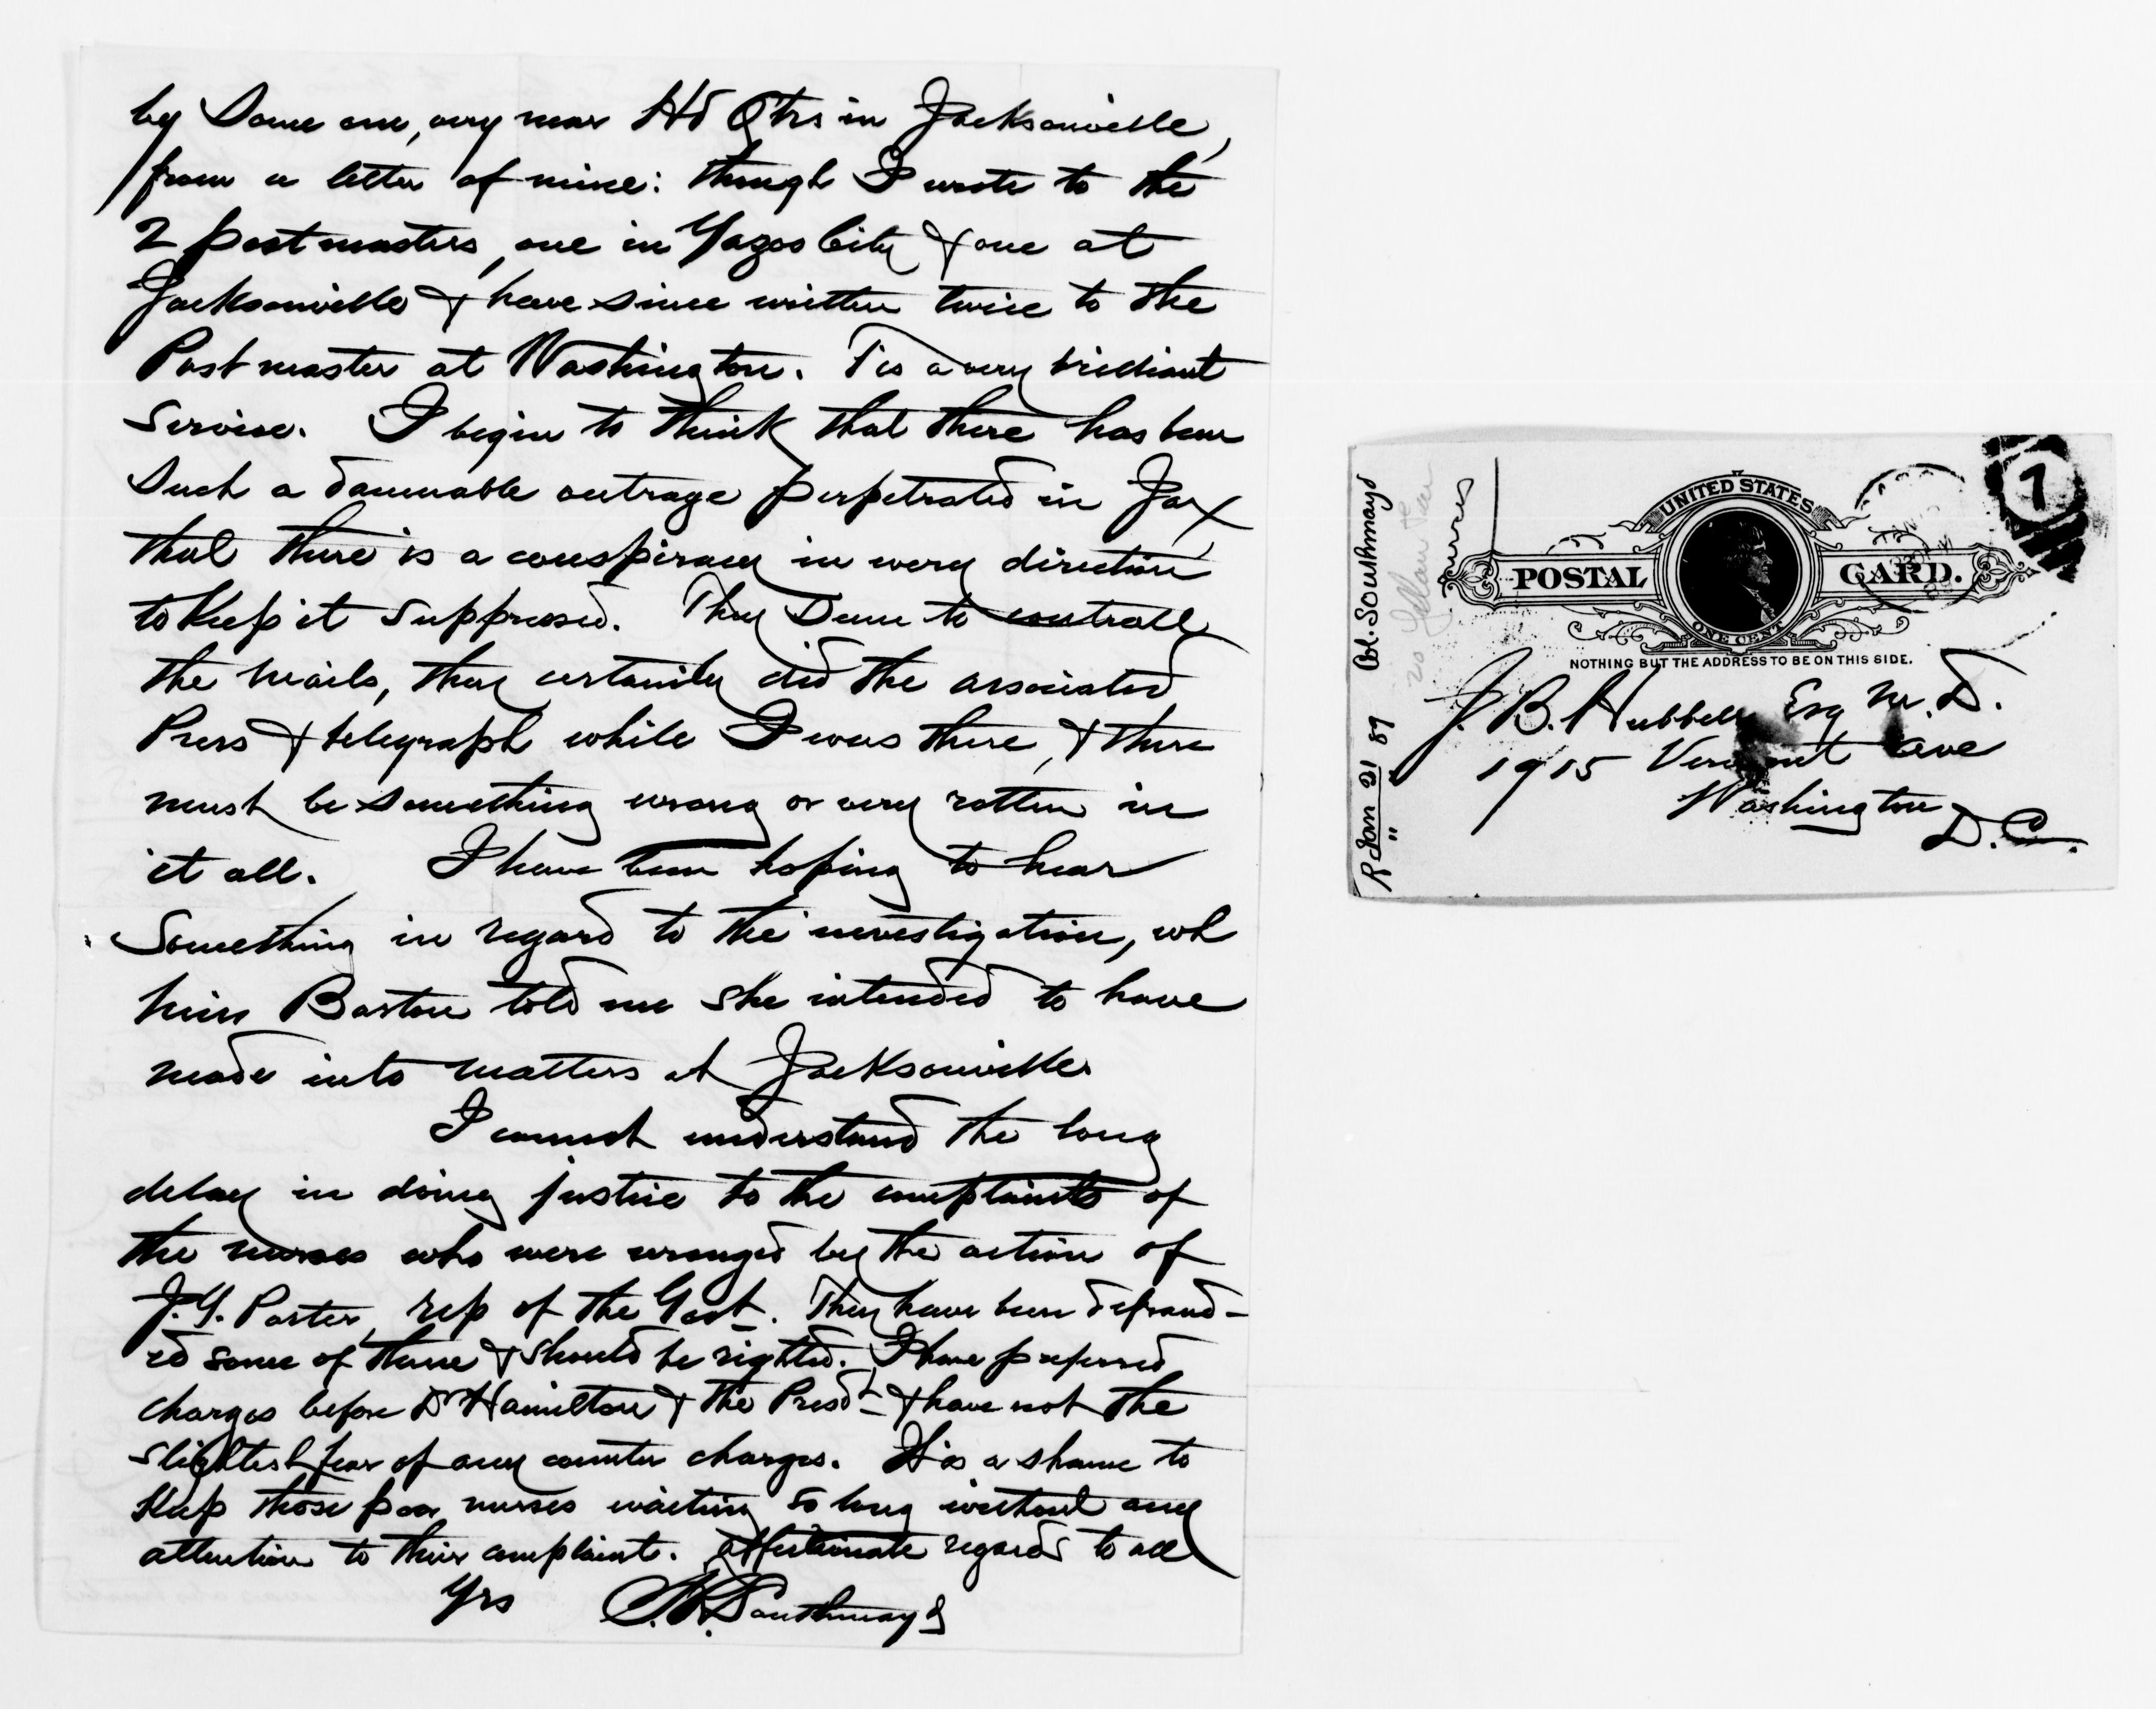 by Some one, very near Hd Qtrs in Jacksonville,
from a letter of mine: though I wrote to the
2 postmasters, one in Yazoo City & one at
Jacksonville & have since written twice to the
Postmaster at Washington. Tis a very brilliant
Service. I begin to think that there has been
Such a damnable outrage perpetrated in Jax
that there is a conspiracy in every direction
to keep it suppressed. They Seem to controll
the mails, they certainly did the associated
Press & telegraph while I was there, & there
must be something wrong or very rotten in
it all. I have been hoping to hear
Something in regard to the investigation, wh
Miss Barton told me she intended to have
made into matters at Jacksonville
I cannot understand the long
delay in doing justice to the complaints of
the nurses who were wronged by the action of
J. Y. Porter, rep of the Govt. They have been defraud-
ed some of them & should be righted. I have preferred
charges before Dr Hamilton & the Presdt & have not the
slightest fear of any counter charges. It is a shame to
keep those poor nurses waiting so long without any
attention to their complaints. Affectionate regards to all
Yrs F. R. Southmayd
Col. Southmayd
R Jan 21 89
Yellow Fever
Nurses
UNITED STATES
POSTAL CARD.
ONE CENT
NOTHING BUT THE ADDRESS TO BE ON THIS SIDE.
7
J. B. Hubbell Esq M. D.
1915 Vermont Ave
Washington
D. C.